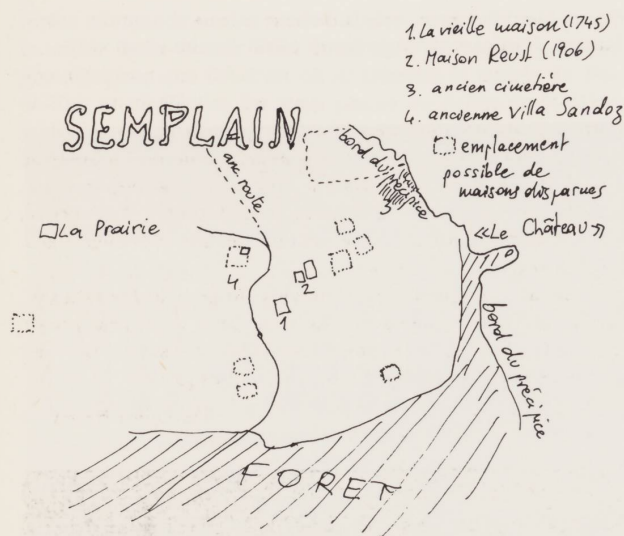 1. La vieille maison (1745)
2. Maison Reust (1906)
3. ancien cimetière
4. ancienne Villa Sandoz
emplacement
possible de
maisons disparues
SEMPLAIN
anc. route
bord du précipice
3
La Prairie
«Le Château»
4
2
1
bord du précipice
FORET